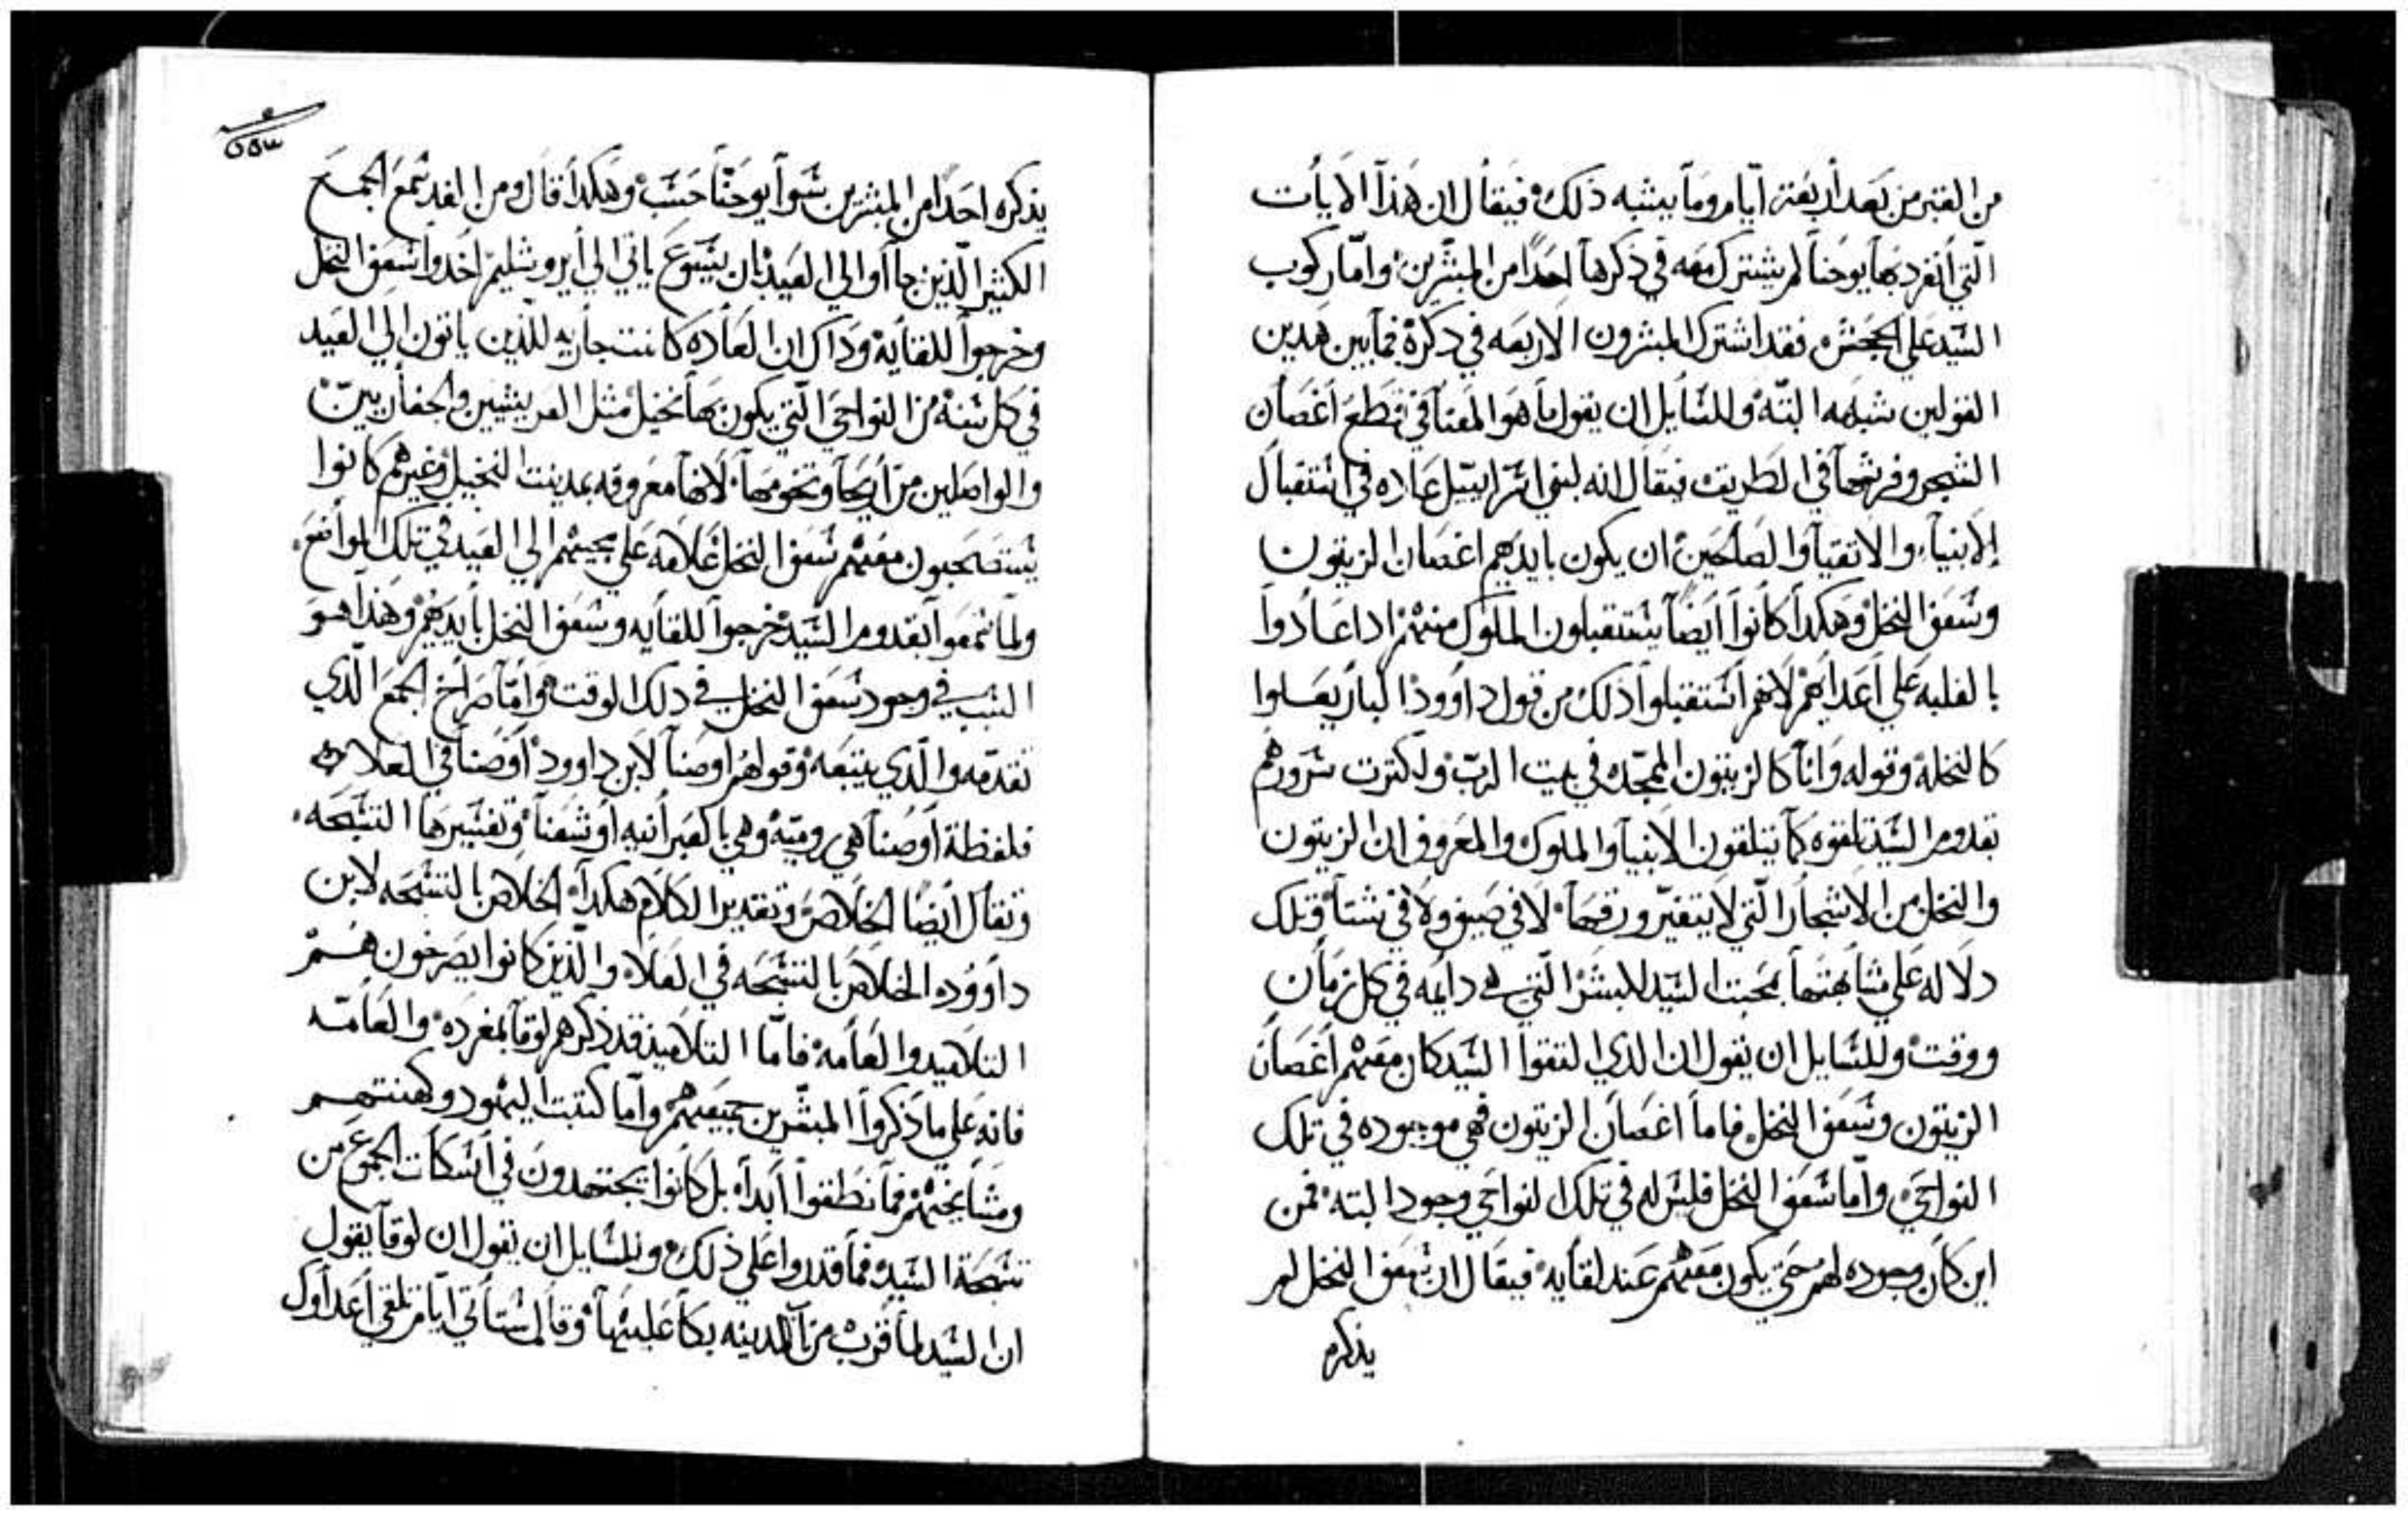 من القبر من بعد أربعة أيام وما يشبه ذلك فيقال ان هذا الايات
التي أنفرد بها يوحنا لم يشترك معه في ذكرها احدًا من المبشرين وامّا ركوب
السّيد علي الجحش فقد اشترك المبشرون الاربعه في ذكرة فما بين هدين
القولين شبهه البتّه وللسّايل ان يقول ما هو المعنا في قطع اغصان
الشجر وفرشها في الطريق فيقال انه لبني اسراييل عاده في استقبال
الانبياء والاتقيا والصالحين ان يكون بايديهم اغصان الزيتون
وسعف النخل وهكدا كانوا أيضًا يستقبلون الملوك منهم ادا عادوا
بالغلبه علي اعدايهم لانهم استقبلوا ذلك من قول داوود البار يعلوا
كالنخله وقوله وانا كالزيتون الممجّده في بيت الربّ ولكترت سرورهم
بقدوم السّيد تلقوه كما يتلقون الانبيا والملوك والمعروف ان الزيتون
والنخل من الاشجار الّتي لا يتغيّر ورقها لا في صيف ولا في شتا وتلك
دلاله علي مشابهتها بمحبت السّيد للبشر الّتي هي دايمه في كل زمان
ووقت وللسّايل ان يقول ان الذي التقوا السّيد كان معهم اغصان
الزيتون وسعف النخل فاما اغصان الزيتون فهي موجوده في تلك
النواحي وامّا سعف النخل فليس له في تلك النواحي وجود البته فمن
اين كان وجوده لهم حتي يكون معهم عند لقايه فيقال ان سعف النخل لم
يذكره
٥٥٣
يذكره احدًا من المبشرين سوا يوحنّا حسب وهكدا قال ومن الغد سمع الجمع
الكثير الّذين جااوا الي العيد بان يسوع ياتي الي أيروشليم اخدوا سعف النخل
وخرجوا للقايه وداك ان العاده كانت جاريه للّذين ياتون الي العيد
في كل سنه من النواحي الّتي يكون بها نخيل مثل العريشيين والجفاريين
والواصلين من أريحا وتخومها لانها معروفه بمدينت النخيل وغيرهم كانوا
يستصحبون معهم سعف النخل علامه علي مجيهم الي العيد في تلك المواضع
ولما سمعوا بقدوم السّيد خرجوا للقايه وسعف النخل بايديهم وهذا هو
السبب في وجود سعف النخل في دلك الوقت وامّا صراخ الجمع الّدي
تقدّمه والّدي يتبعه وقولهم اوصنا لابن داوود اوصنا في العلاه
فلفظة أوصنا هي روميّه وهي بالعبرانيه اوشعنا وتفسيرها التسبحه
وتقال ايضًا الخلاص وتقدير الكلام هكدا الخلاص بالتسبحه لابن
داوود الخلاص بالتسبحه في العلاه والّذين كانوا يصرخون هم
التلاميد والعامه فامّا التلاميذ فقد ذكرهم لوقا بمفرده والعامّه
فانه علي ما ذكروا المبشّرين جميعهم وامّا كتبت اليهود وكهنتهم
ومشايخهم فما نطقوا أبداه بل كانوا يجتهدون في أسكات الجموع من
تسبحة السّيد فما قدروا علي ذلك وللسّايل ان يقول ان لوقا يقول
ان السّيد لما قرب من المدينه بكا عليها وقال ستاتي ايّام تلقي أعداوك